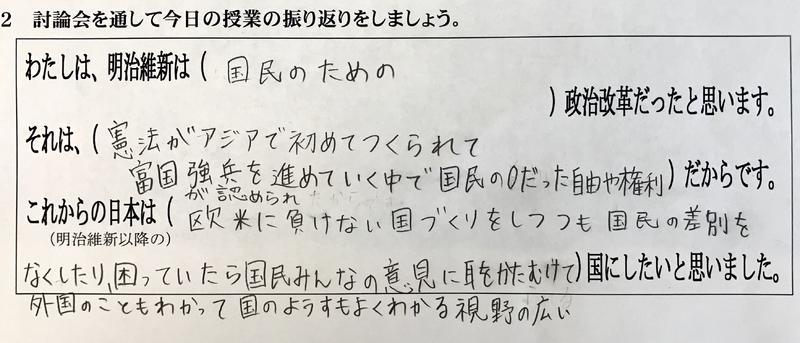 2 討論会を通して今日の授業の振り返りをしましょう。
わたしは、明治維新は( 国民のための
)政治改革だったと思います。
それは、(憲法がアジアで初めてつくられて
富国強兵を進めていく中で国民の0だった自由や権利)だからです。
が認められ
これからの日本は(欧米に負けない国づくりをしつつも国民の差別を
(明治維新以降の)
なくしたり、困っていたら国民みんなの意見に耳をかたむけて)国にしたいと思いました。
外国のこともわかって国のようすもよくわかる視野の広い